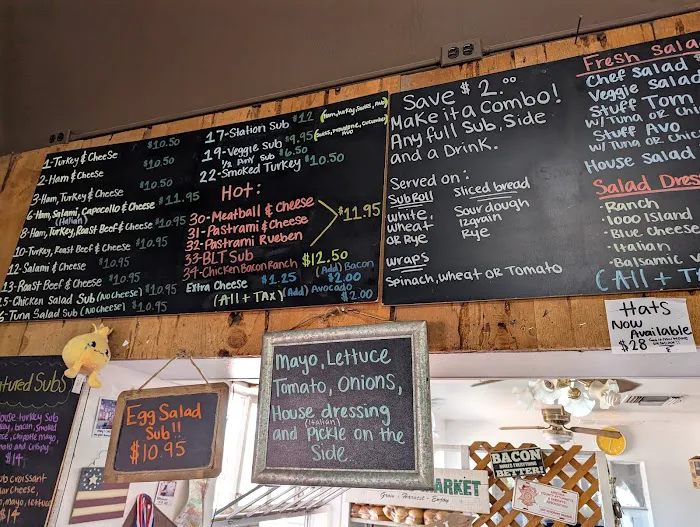 1-Turkey & Cheese $10.50
2-Ham & Cheese $10.50
3-Ham, Turkey & Cheese $10.50
6-Ham, Salami, Capocollo & Cheese $11.95
(Italian)
8-Ham, Turkey, Roast Beef & Cheese $10.95
10-Turkey, Roast Beef & Cheese $10.95
12-Salami & Cheese $10.95
13-Roast Beef & Cheese $10.95
15-Chicken Salad Sub (No Cheese) $10.95
16-Tuna Salad Sub (No Cheese) $10.95
17-Station Sub $12 (Ham, Turkey, Swiss, Avo)
19-Veggie Sub $9.95
1/2 Any Sub $6.50
22-Smoked Turkey $10.50
Hot:
30-Meatball & Cheese
31-Pastrami & Cheese
32-Pastrami Rueben
$11.95
33-BLT Sub
34-Chicken Bacon Ranch $12.50
Extra Cheese $1.25 (Add) Bacon $2.00
(All + Tax) (Add) Avocado $2.00
Save $2.00
Make it a Combo!
Any full Sub, Side
and a Drink.
Served on:
Sub Roll
White,
Wheat
or Rye
Sliced bread
Sour dough
Rye
Wraps
Spinach, Wheat or Tomato
Fresh Sala
Chef Salad
Veggie Salad
Stuff Tom
w/ Tuna or Ch
Stuff Avo
w/ Tuna or Ch
House Salad
Salad Dres
-Ranch
-1000 Island
-Blue Cheese
-Italian
-Balsamic v
(All + T
Hats
Now
Available
$28
atured Subs
ouse turkey sub
bacon, smoked
chipotle mayo,
and crispy
$14
ub croissant
dar cheese,
mayo, lettuce
$14
Egg Salad
Sub!!
$10.95
Mayo, Lettuce
Tomato, Onions,
House dressing
(Italian)
and Pickle on the
Side.
MARKET
Grow • Harvest • Enjoy
BACON
MAKES EVERYTHING
BETTER!